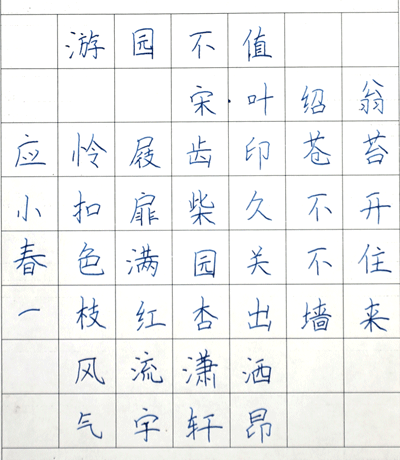 游园不值
宋·叶绍翁
应怜屐齿印苍苔
小扣扉柴久不开
春色满园关不住
一枝红杏出墙来
风流潇洒
气宇轩昂